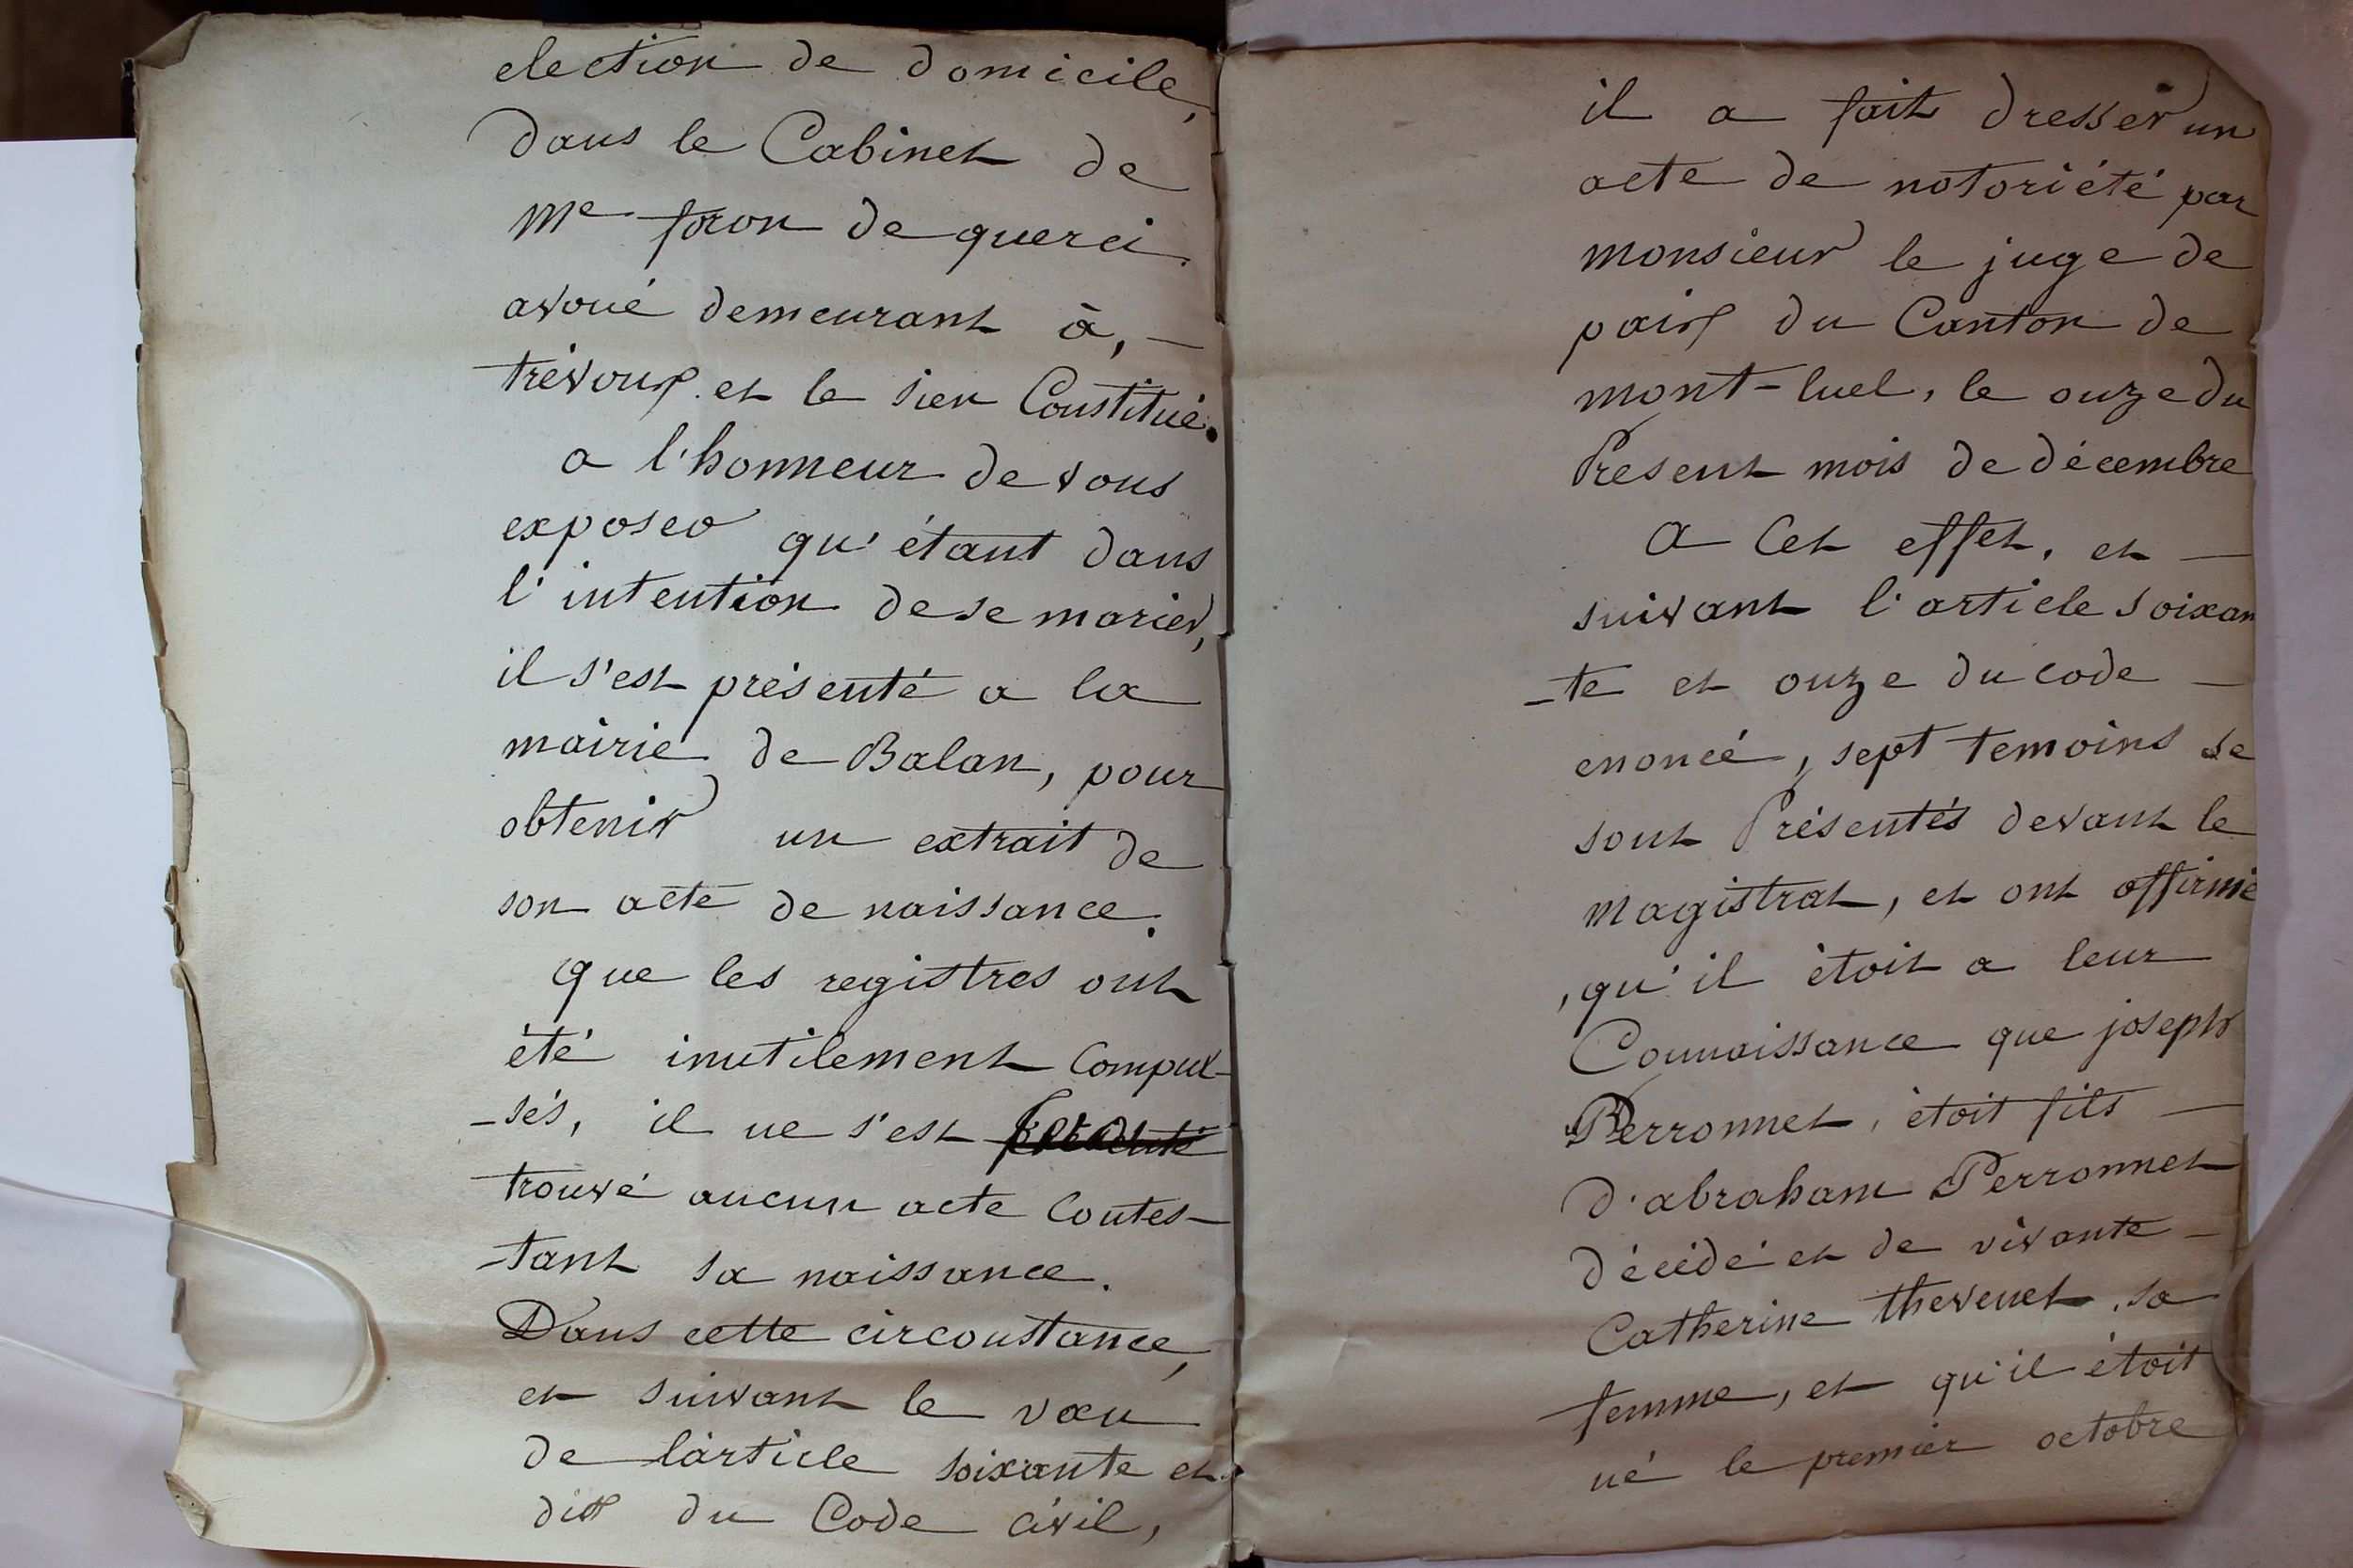 election de domicile,
dans le Cabinet de
Me foron de querci
avoué demeurant à, —
trévoux et le sien Constitué.
a l'honneur de vous
exposer qu'étant dans
l'intention de se marier,
il s'est présenté a la
mairie de Balan, pour
obtenir un extrait de
son acte de naissance.
que les registres ont
été inutilement Compul-
-sés, il ne s'est
trouvé aucun acte Contes-
-tant sa naissance.
Dans cette circonstance,
et suivant le vœu
de l'article soixante et
dix du Code civil,
il a fait dresser un
acte de notoriété par
monsieur le juge de
paix du Canton de
mont-luel, le onze du
Présent mois de décembre
A Cet effet, et —
suivant l'article soixan
-te et onze du code —
enoncé, sept temoins se
sont Présentés devant le
magistrat, et ont affirmé
, qu'il étoit a leur
Connaissance que joseph
Perronnet, étoit fils —
d'abraham Perronnet
décédé et de vivante —
Catherine thevenet, sa
femme, et qu'il étoit
né le premier octobre